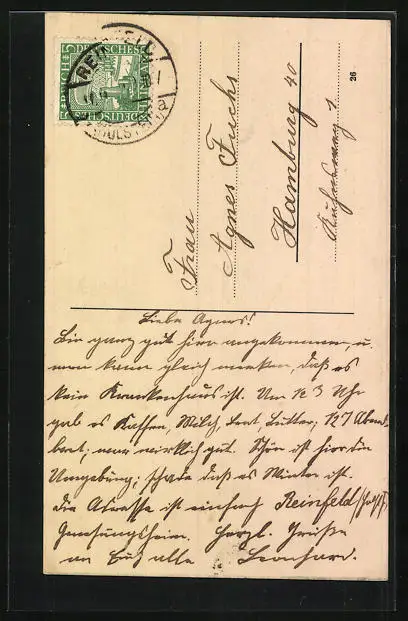 DEUTSCHES REICH
REINFELD
(HOLSTEIN)
a
26
Frau
Agnes Fuchs
Hamburg 40
Liebe Agnes!
Bin ganz gut hier angekommen, u.
man kann gleich merken, daß es
kein Krankenhaus ist. Um ½ 3 Uhr
gab es Kaffee, Milch, Brot, Butter; ½ 7 Abend-
brot, nur wirklich gut. Schön ist hier die
Umgebung; schade daß es Winter ist.
Die Adresse ist einfach Reinfeld (Holst),
Genesungsheim. Herzl. Grüße
an Euch alle Leonhard.